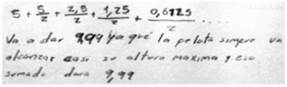 5 + 5/2 + 2,5/2 + 1,25/2 + 0,6125/2 ....
Va a dar 9,99 ya que la pelota siempre va
alcanzar casi su altura maxima y eso
sumado dara 9,99